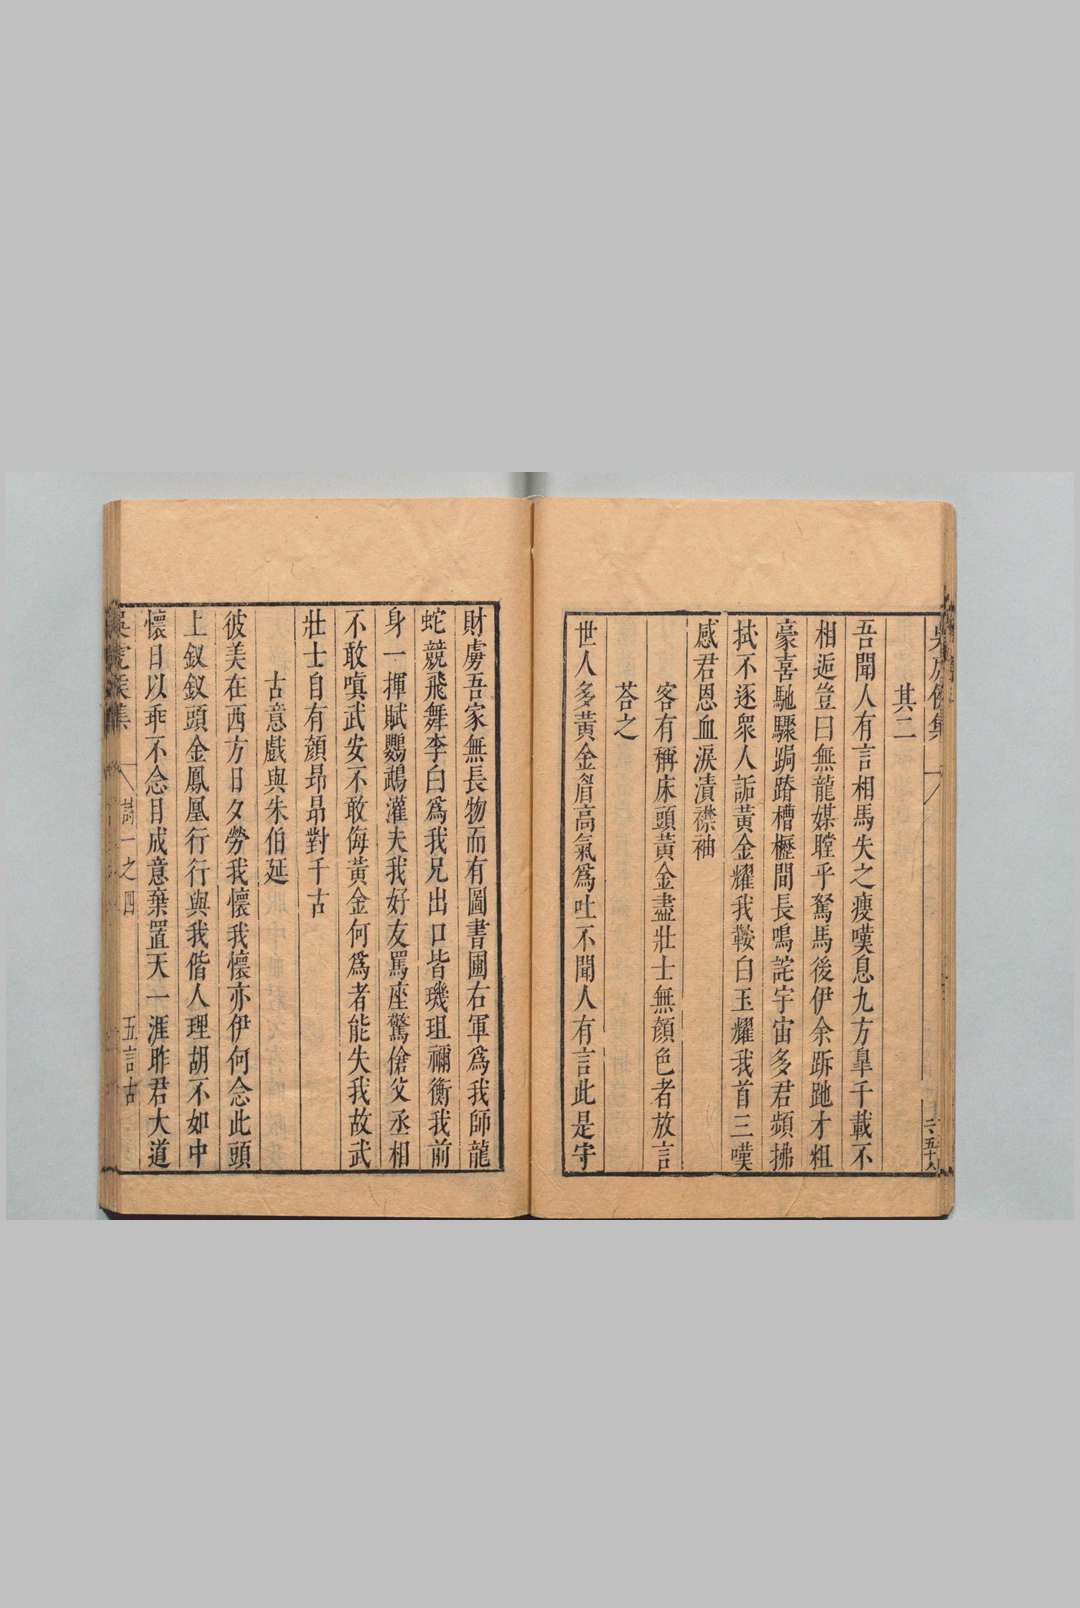 其二
吾聞人有言相馬失之瘦嘆息九方臯千載不
相逅豈曰無龍媒瞠乎駑馬後伊余跅跑才粗
豪喜馳驟跼蹐槽櫪間長鳴詫宇宙多君頻拂
拭不逐衆人詬黃金耀我鞍白玉耀我首三嘆
感君恩血淚漬襟袖
客有稱床頭黃金盡壯士無顏色者放言
荅之
世人多黃金眉高氣爲吐不聞人有言此是守
財虜吾家無長物而有圖書圃右軍爲我師龍
蛇競飛舞李白爲我兄出口皆璣珇禰衡我前
身一揮賦鸚鵡灌夫我好友罵座驚傖父丞相
不敢嗔武安不敢侮黃金何爲者能失我故武
壯士自有顏昂昂對千古
古意戲與朱伯延
彼美在西方日夕勞我懷我懷亦伊何念此頭
上釵釵頭金鳳凰行行與我偕人理胡不如中
懷日以乖不念目成意棄置天一涯昨君大道
詩一之四
五言古